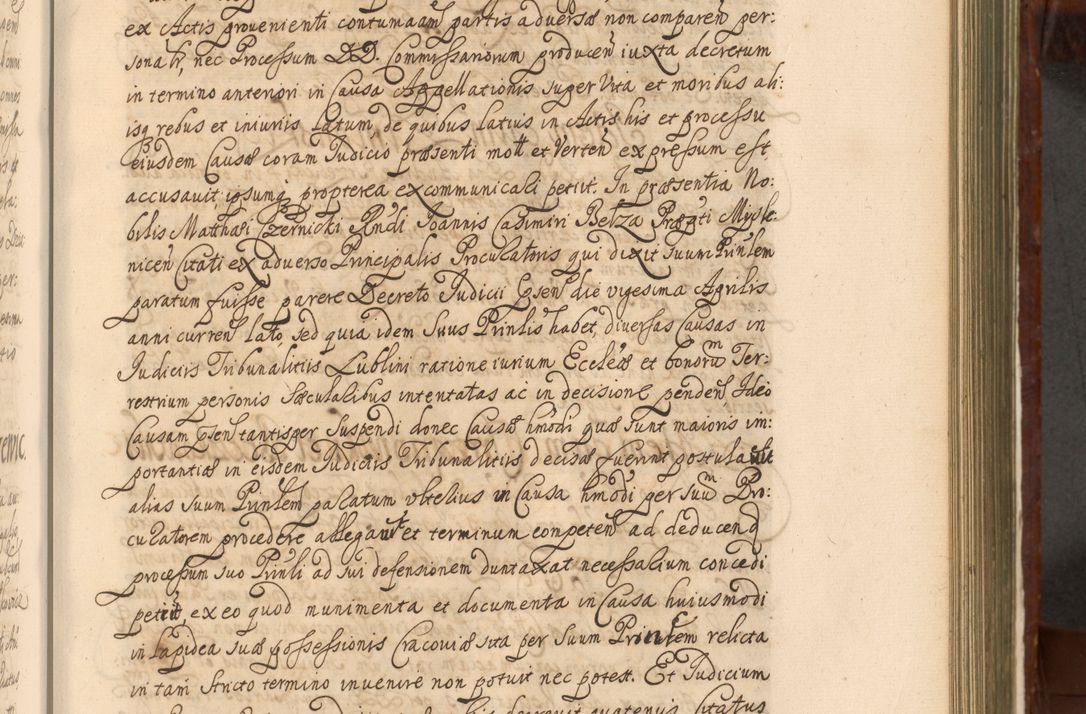 ex Actis provenienti contumaciam partis adversæ non comparen̄ per:
sonalr̄, nec Processum DD. Commissariorum producen̄ iuxta decretum
in termino anteriori in Causa Appellationis super Vita et moribus ali:
isq̨ rebus et iniuriis latum, de quibus latius in Actis his et processu
eiusdem Causæ coram Iudicio præsenti mott et Verten̄ expressum est
accusavit, ipsumq̨ propterea excommunicari petiit. In præsentia No:
bilis Matthæi Czernicki Rndi Ioannis Casimiri Betza Præpti Mysle:
nicen̄ Citati ex adverso Principalis Procuratoris qui dixit suum Prinlem
paratum fuisse parere Decreto Iudicii Epsen̄ die vigesima Aprilis
anni curren̄ lato, sed quia idem Suus Prinlis habet, diversas Causas in
Iudiciis Tribunalitiis Lublini ratione iurium Eccleæ et bonorum Ter:
restrium personis Sæcularibus intentatas ac in decisione penden̄ Ideo
Causam Epsen̄ tantisper Suspendi donec Causæ hmodi quæ sunt maioris im:
portantiæ in eisdem Iudiciis Tribunalitiis decisæ fuerint postulavit
alias suum Prinlem paratum ulterius in Causa hmodi per suum Pro:
curatorem procedere allegavit et terminum competen̄ ad deducend
processum suo Prinli ad sui defensionem duntaxat necessarium concedi
petiit, ex eo quod munimenta et documenta in Causa huiusmodi
in lapidea suæ possessionis Cracoviæ sita per suum Prinlem relicta
in tam stricto termino invenire non potuit nec potest. Et Iudicium
quatenus Citatus